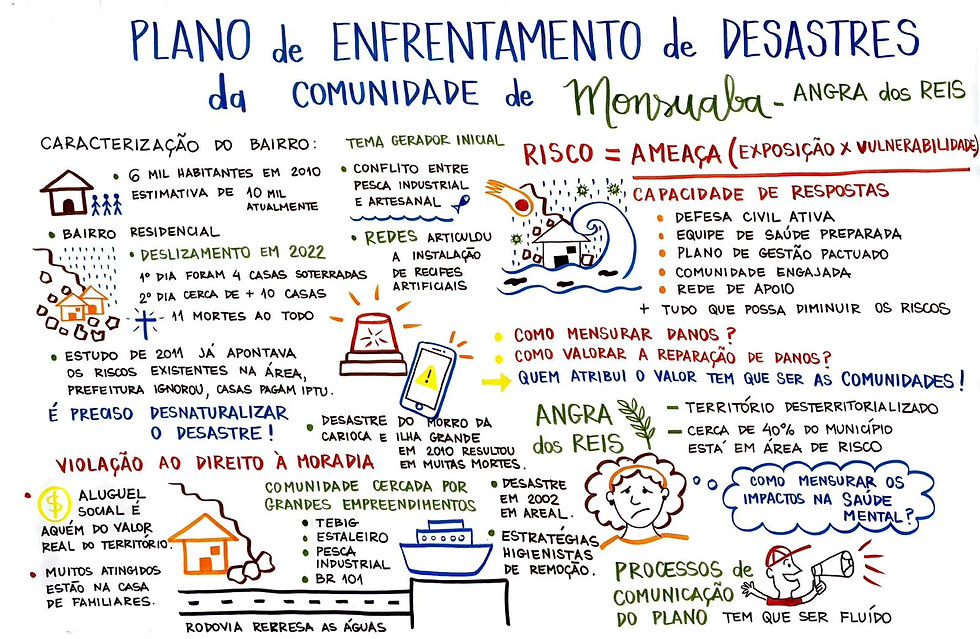 PLANO de ENFRENTAMENTO de DESASTRES
da COMUNIDADE de Monsuaba - ANGRA dos REIS
CARACTERIZAÇÃO DO BAIRRO:
• 6 MIL HABITANTES EM 2010
ESTIMATIVA DE 10 MIL
ATUALMENTE
• BAIRRO RESIDENCIAL
• DESLIZAMENTO EM 2022
1º DIA FORAM 4 CASAS SOTERRADAS
2º DIA CERCA DE + 10 CASAS
- 11 MORTES AO TODO
• ESTUDO DE 2011 JÁ APONTAVA
OS RISCOS EXISTENTES NA ÁREA,
PREFEITURA IGNOROU, CASAS PAGAM IPTU.
É PRECISO DESNATURALIZAR
O DESASTRE!
TEMA GERADOR INICIAL
• CONFLITO ENTRE
PESCA INDUSTRIAL
E ARTESANAL
• REDES ARTICULOU
A INSTALAÇÃO
DE RECIFES
ARTIFICIAIS
• DESASTRE DO MORRO DA
CARIOCA E ILHA GRANDE
EM 2010 RESULTOU
EM MUITAS MORTES.
RISCO = AMEAÇA (EXPOSIÇÃO X VULNERABILIDADE)
CAPACIDADE DE RESPOSTAS
• DEFESA CIVIL ATIVA
• EQUIPE DE SAÚDE PREPARADA
• PLANO DE GESTÃO PACTUADO
• COMUNIDADE ENGAJADA
• REDE DE APOIO
+ TUDO QUE POSSA DIMINUIR OS RISCOS
• COMO MENSURAR DANOS?
• COMO VALORAR A REPARAÇÃO DE DANOS?
→ QUEM ATRIBUI O VALOR TEM QUE SER AS COMUNIDADES!
ANGRA
dos REIS
- TERRITÓRIO DESTERRITORIALIZADO
- CERCA DE 40% DO MUNICÍPIO
ESTÁ EM ÁREA DE RISCO
VIOLAÇÃO AO DIREITO À MORADIA
• $ ALUGUEL
SOCIAL É
AQUÉM DO VALOR
REAL DO TERRITÓRIO.
• MUITOS ATINGIDOS
ESTÃO NA CASA
DE FAMILIARES.
COMUNIDADE CERCADA POR
GRANDES EMPREENDIMENTOS
• TEBIG
• ESTALEIRO
• PESCA
INDUSTRIAL
• BR 101
RODOVIA REPRESA AS ÁGUAS
• DESASTRE
EM 2002
EM AREAL.
• ESTRATÉGIAS
HIGIENISTAS
DE REMOÇÃO.
COMO MENSURAR OS
IMPACTOS NA SAÚDE
MENTAL?
PROCESSOS de
COMUNICAÇÃO
DO PLANO TEM QUE SER FLUÍDO